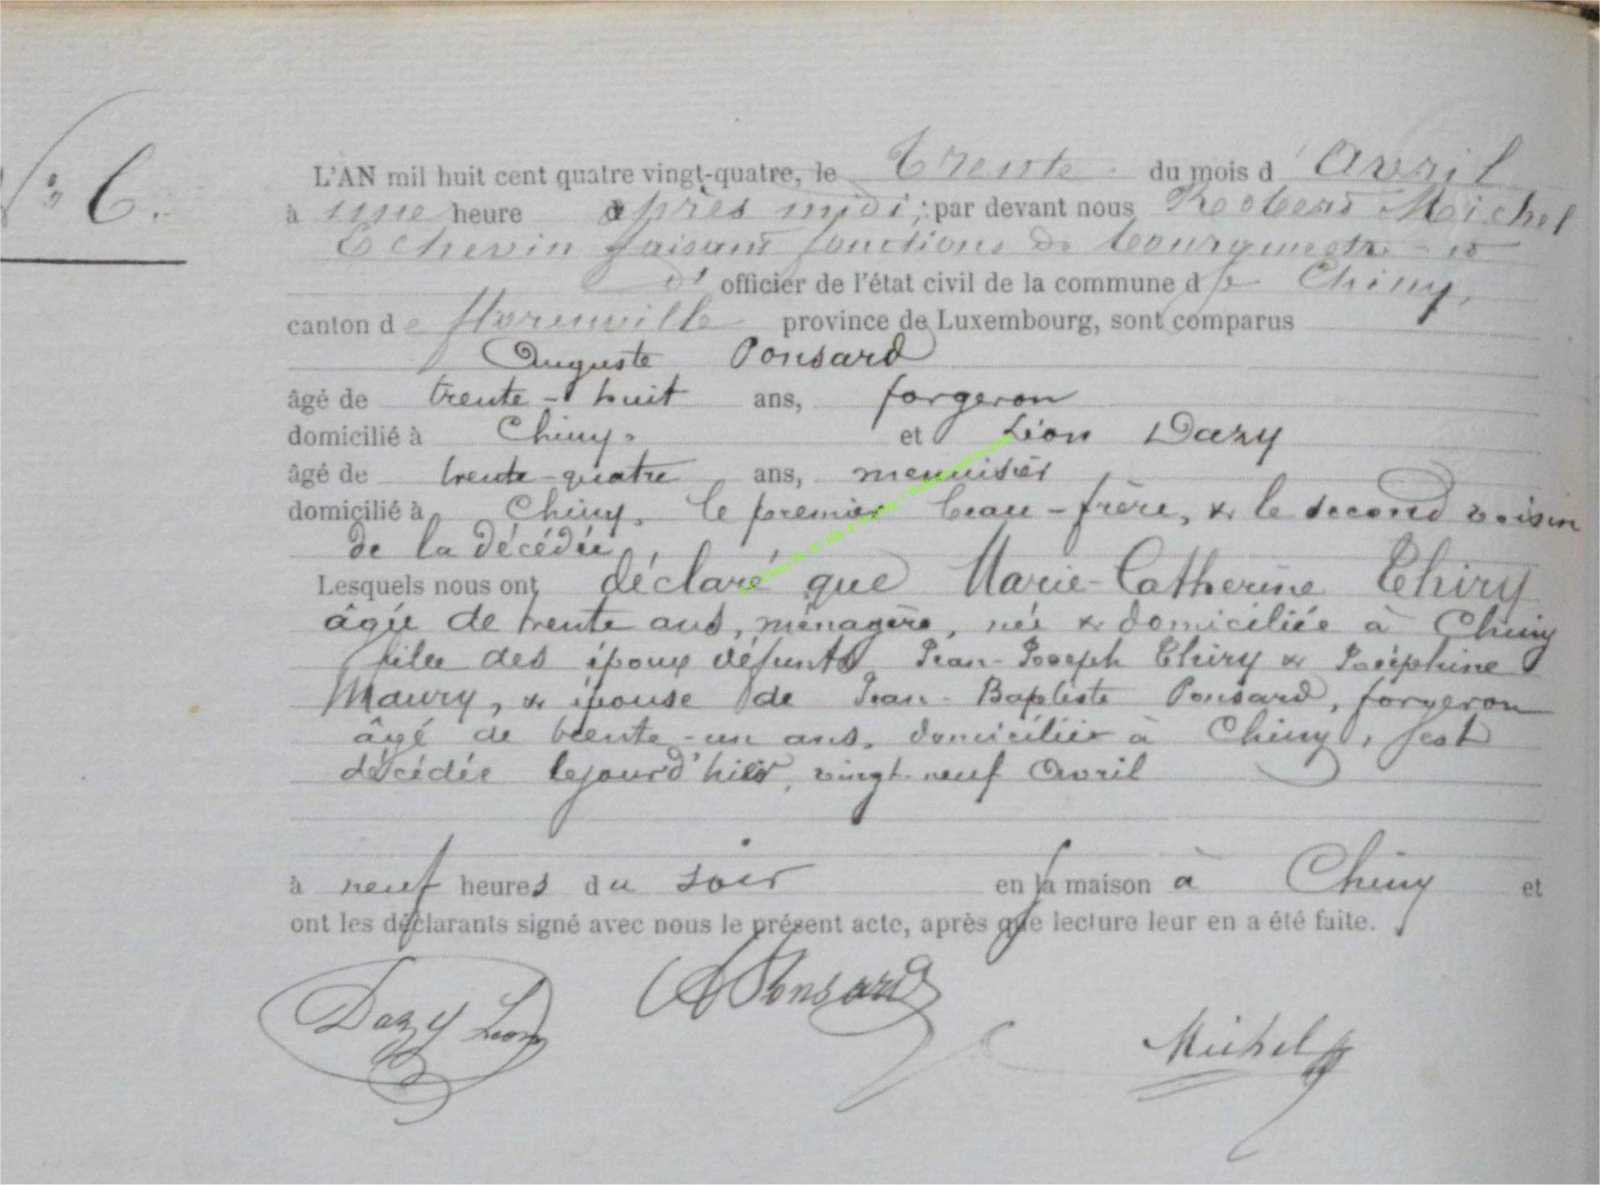 N° 6.
L'AN mil huit cent quatre vingt-quatre, le trente du mois d'Avril
à une heure après midi, par devant nous Robert Michel
Echevin faisant fonctions de bourgmestre et
d' officier de l'état civil de la commune de Chiny,
canton de Florenville province de Luxembourg, sont comparus
Auguste Ponsard
âgé de trente-huit ans, forgeron
domicilié à Chiny, et Léon Dazy
âgé de trente-quatre ans, menuisier
domicilié à Chiny, le premier beau-frère, & le second voisin
de la décédée
Lesquels nous ont déclaré que Marie-Catherine Thiry
âgée de trente ans, ménagère, née & domiciliée à Chiny
fille des époux défunts Jean-Joseph Thiry & Joséphine
Maury, & épouse de Jean-Baptiste Ponsard, forgeron
âgé de trente-un ans, domicilié à Chiny, est
décédée le jour d'hier, vingt-neuf Avril
à neuf heures du soir en sa maison à Chiny et
ont les déclarants signé avec nous le présent acte, après que lecture leur en a été faite.
Dazy Léon A Ponsard Michel